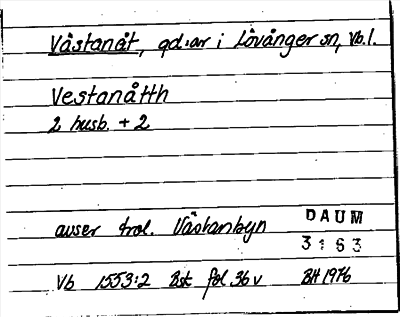 Västanåt, gd:ar i Lövånger sn, Vb.l.
Vestanåtth
2 husb. + 2
avser trol. Västanbyn
DAUM
3163
Vb 1553:2 Bst fol 36 v BH 1976